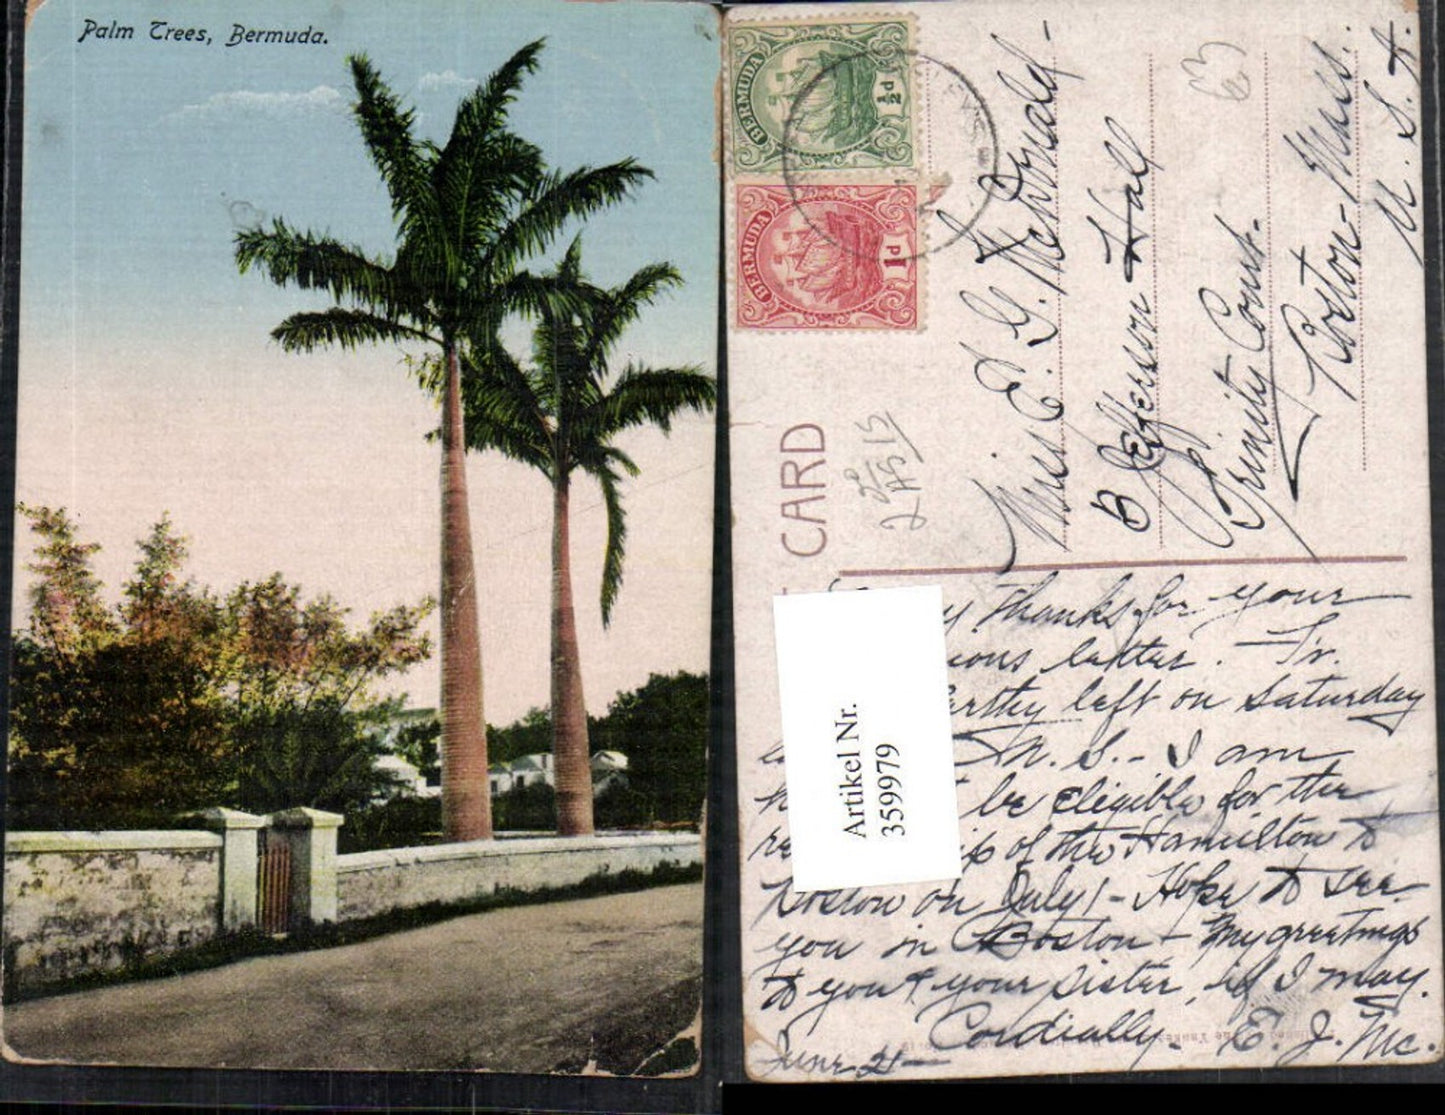 Palm Trees, Bermuda.
BERMUDA
½d
BERMUDA
1d
CARD
Miss E. G. McDonald -
6 Jefferson Hall
Trinity Court.
Boston - Mass..
U. S. A.
Artikel Nr.
359979
thanks for your
letter. Fr.
left on Saturday
N. S. - I am
be eligible for the
of the Hamilton to
Boston on July 1 - Hope to see
you in Boston - My greetings
to you & your sister, if I may.
Cordially - E. J. Mc.
June 21 -